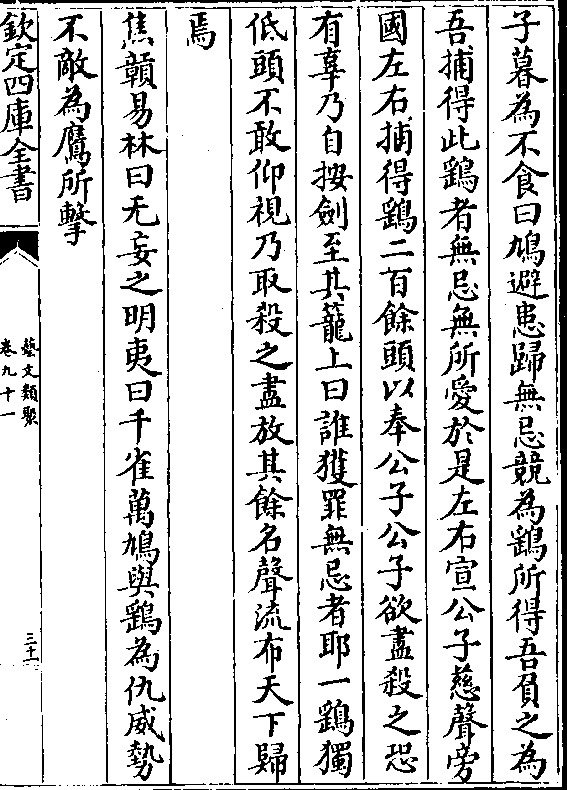 子暮為不食曰鳩避患歸無忌競為鷂所得吾負之為
吾捕得此鷂者無忌無所愛於是左右宣公子慈聲旁
國左右捕得鷂二百餘頭以奉公子公子欲盡殺之恐
有辜乃自按劍至其籠上曰誰獲罪無忌者耶一鷂獨
低頭不敢仰視乃取殺之盡放其餘名聲流布天下歸
焉
焦贛易林曰无妄之明夷曰千雀萬鳩與鷂為仇威勢
不敵為鷹所擊
欽定四庫全書
藝文類聚
卷九十一
三十一